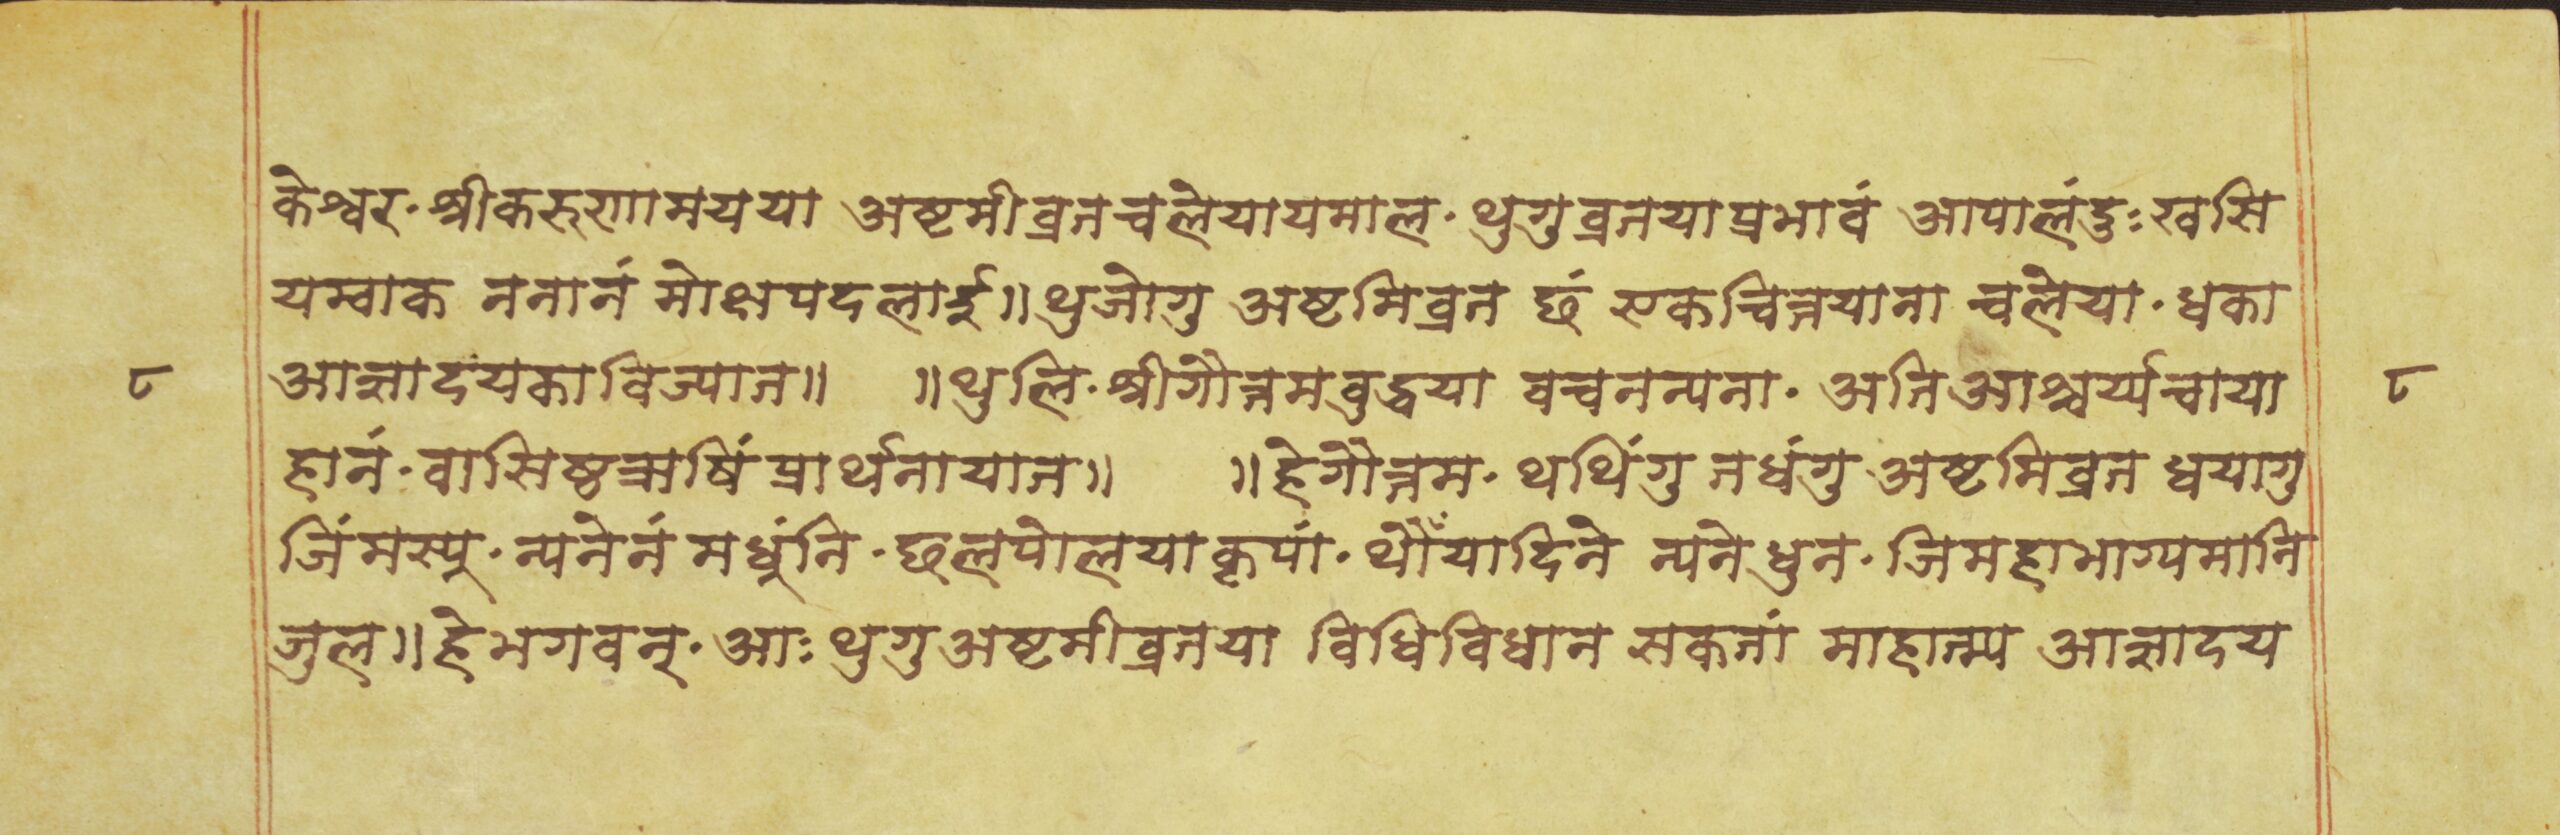 केश्वर· श्रीकरुणामयया अष्टमीव्रतचलेयायमाल· थुगुव्रतयाप्रभावं आपालंदुःखसि
यम्वाक ननानं मोक्षपदलाई॥ थुजोगु अष्टमिव्रत छं एकचित्तयाना चलेया· धका
८ आज्ञादयकाविज्यात॥ ॥थुलि· श्रीगौत्तमबुद्धया वचनन्यना· अतिआश्चर्य्यचाया ८
हानं· वासिष्ठऋषिं प्रार्थनायात॥ ॥हेगौत्तम· थथिंगु तधंगु अष्टमिव्रत धयागु
जिंमस्यू· न्यनेनं मधुंनि· छलपोलयाकृपां· थौंयादिने न्यनेधुन· जिमहाभाग्यमानि
जुल॥ हेभगवन्· आः थुगुअष्टमीव्रतया विधिविधान सकतां माहात्म्य आज्ञादय